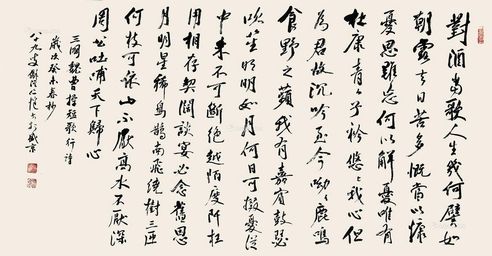 對酒當歌人生幾何譬如
朝露去日苦多慨當以慷
憂思難忘何以解憂唯有
杜康青々子衿悠々我心但
為君故沉吟至今呦々鹿鳴
食野之蘋我有嘉賓鼓瑟
吹笙明明如月何日可掇憂從
中來不可斷絕越陌度阡枉
用相存契闊談宴心念舊恩
月明星稀烏鵲南飛繞樹三匝
何枝可依山不厭高水不厭深
周公吐哺天下歸心
三國魏曹操短歌行詩
歲次癸未春杪
八十九叟書於盛京